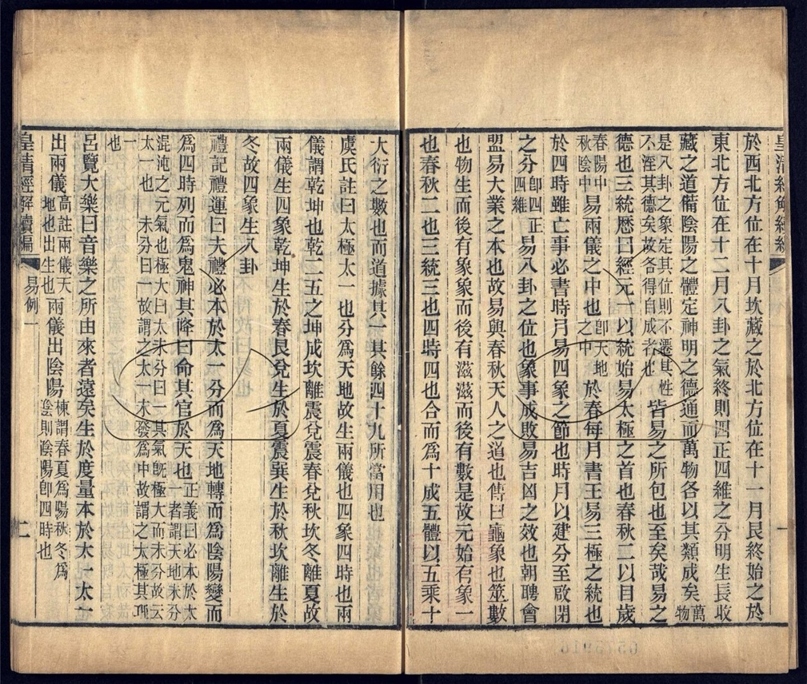 皇清經解續編
於西北方位在十月坎藏之於北方位在十一月艮終始之於
東北方位在十二月八卦之氣終則四正四維之分明生長收
藏之道備陰陽之體定神明之德通而萬物各以其類成矣萬物
是八卦之象定其位則不遷其性
不淫其德矣故各得自成者也皆易之所包也至矣哉易之
德也三統歷曰經元一以統始易太極之首也春秋二以目歲
春陽中
秋陰中易兩儀之中也即天地
之中於春每月書王易三極之統也
於四時雖亡事必書時月易四象之節也時月以建分至啟閉
之分即四正
四維易八卦之位也象事成敗易吉凶之效也朝聘會
盟易大業之本也故易與春秋天人之道也傳曰龜象也筮數
也物生而後有象象而後有滋滋而後有數是故元始有象一
也春秋二也三統三也四時四也合而爲十成五體以五乘十
大衍之數也而道據其一其餘四十九所當用也
虞氏註曰太極太一也分爲天地故生兩儀也四象四時也兩
儀謂乾坤也乾二五之坤成坎離震兌震春兌秋坎冬離夏故
兩儀生四象乾坤生於春艮兌生於夏震巽生於秋坎離生於
冬故四象生八卦
禮記禮運曰夫禮必本於太一分而爲天地轉而爲陰陽變而
爲四時列而爲鬼神其降曰命其官於天也正義曰必本於太
一者謂天地未分
混沌之元氣也極大曰太未分曰一其氣旣極大而未分故云
太一也 未分曰一故謂之太一未發爲中故謂之太極其㮣
一
也
呂覽大樂曰音樂之所由來者遠矣生於度量本於太一太一
出兩儀高註兩儀天
地也出生也兩儀出陰陽棟謂春夏爲陽秋冬爲
陰則陰陽即四時也
皇清經解續編
易例一
二